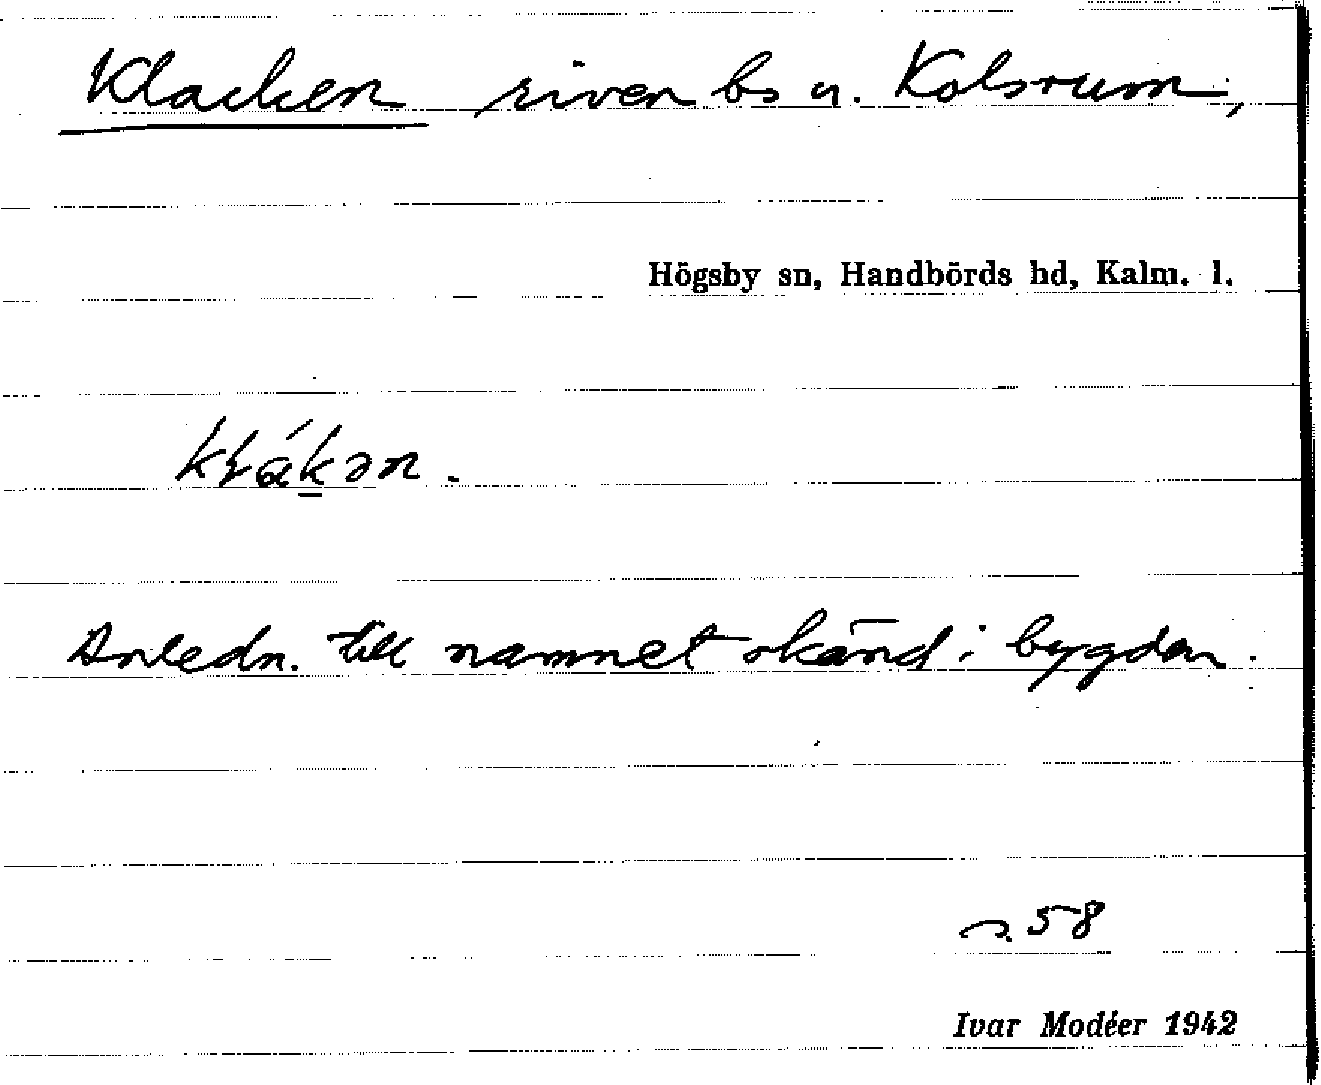 Klacken riven bs u. Kolsrum,
Högsby sn, Handbörds hd, Kalm. l.
kłák̲ən.
Anledn. till namnet okänd i bygden.
s. 58
Ivar Modéer 1942